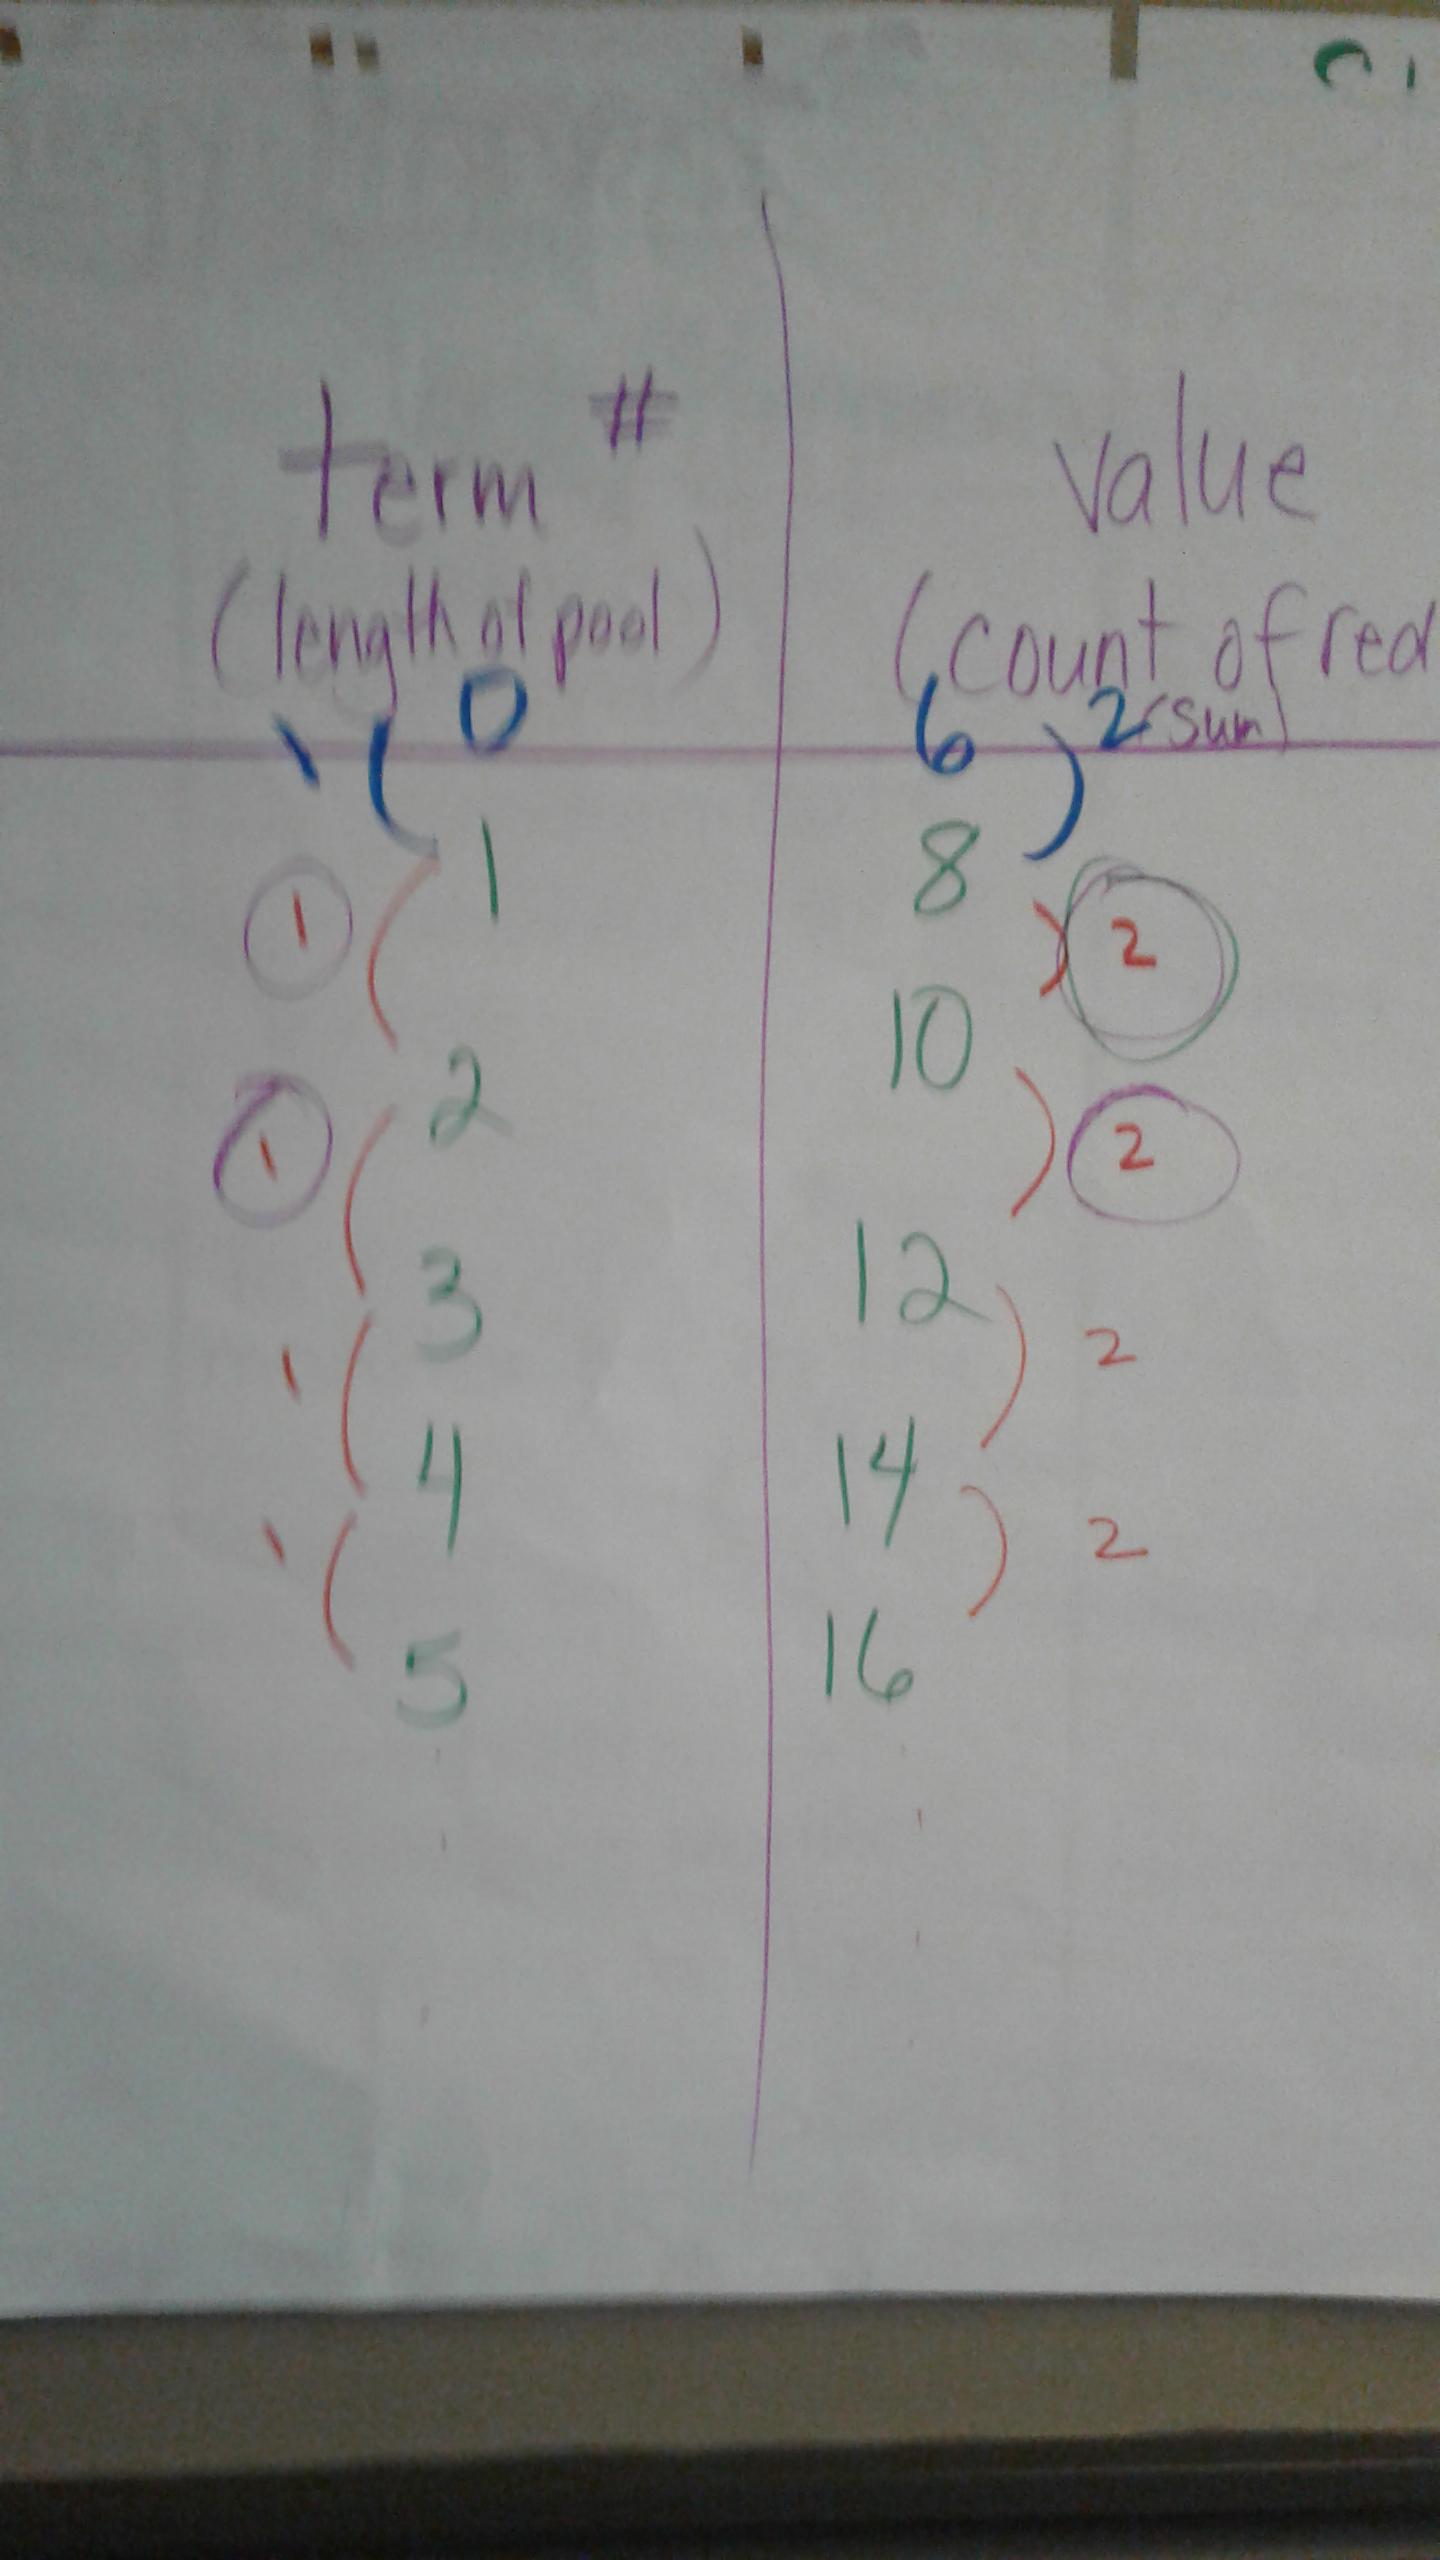 term # value
(length of pool) (count of red
0 6 2 (sum)
1
1 8
1 2
2 10
1 2
3 12
1 2
4 14
1 2
5 16